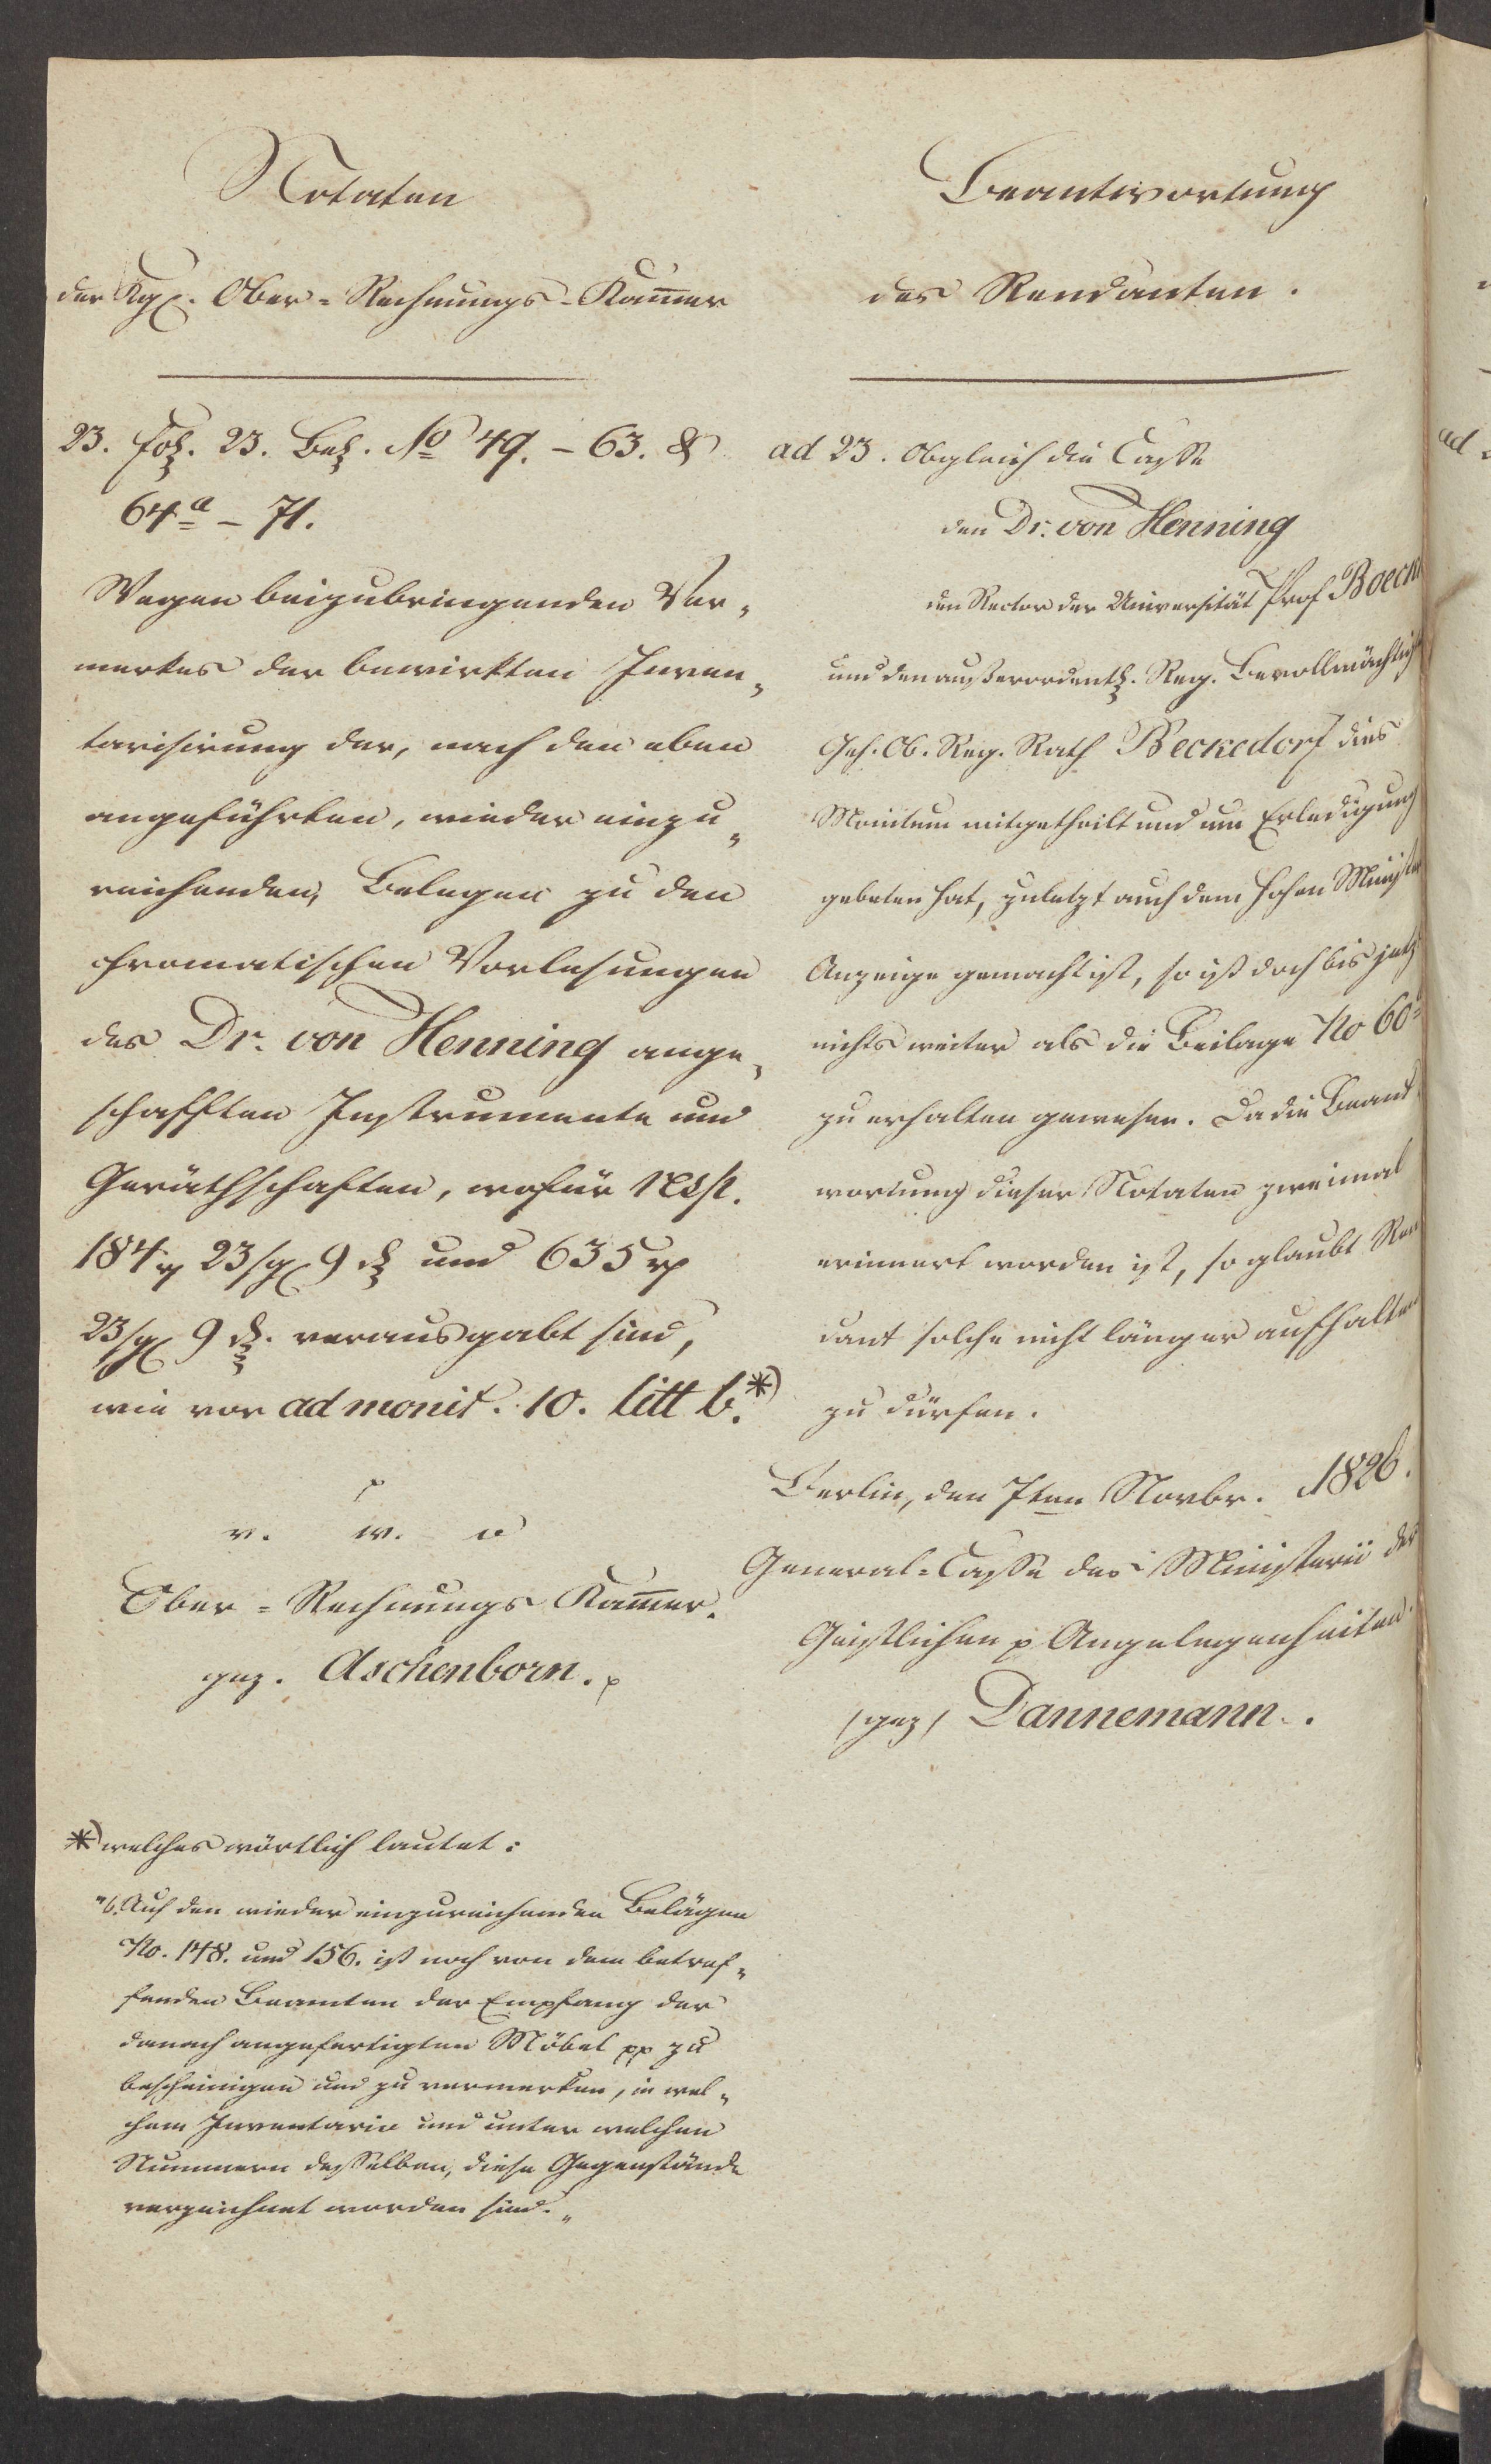 Notaten
der Kgl. Ober-Rechnungs-Kammer
23. fol. 23. Bel. No 49. - 63. &
64a - 71.
Wegen beizubringenden Ver-
merkes der bewirkten Inven-
tarisirung der, nach den eben
angeführten, wieder einzu-
reichenden, Belegen zu den
chromatischen Vorlesungen
des Dr. von Henning ange-
schafften Instrumente und
Geräthschaften, wofür resp.
184 rp 23 sg 9 d und 635 rp
23 sg 9 d. verausgabt sind,
wie vor ad monit. 10. litt b.*)
p
v. w. o
Ober-Rechnungs Kammer.
gez. Aschenborn. p
*) welches wörtlich lautet:
"b. Auf den wieder einzureichenden Belägen
No. 148. und 156. ist noch von dem betref-
fenden Beamten der Empfang der
danach angefertigten Möbel pp zu
bescheinigen und zu vermerken, in wel-
chem Inventario und unter welchen
Nummern desselben, diese Gegenstände
verzeichnet worden sind."
Beantwortung
des Rendanten.
ad 23. Obgleich die Casse
den Dr. von Henning
den Rector der Universität Prof Boeckh
und den außerordentl. Reg. Bevollmächtigt
Geh. Ob. Reg. Rath Beckedorf dies
Monitum mitgetheilt und um Erledigung
gebeten hat, zuletzt auch dem hohen Minister
Anzeige gemacht ist, so ist doch bis jetz
nichts weiter als die Beilage No 60a
zu erhalten gewesen. Da die Beant
wortung dieser Notaten zweimal
erinnert worden ist, so glaubt Ren
dant solche nicht länger aufhalten
zu dürfen.
Berlin, den 7ten Novbr. 1826.
General-Casse des Ministerii der
Geistlichen p Angelegenheiten.
(gez) Dannemann.
ad